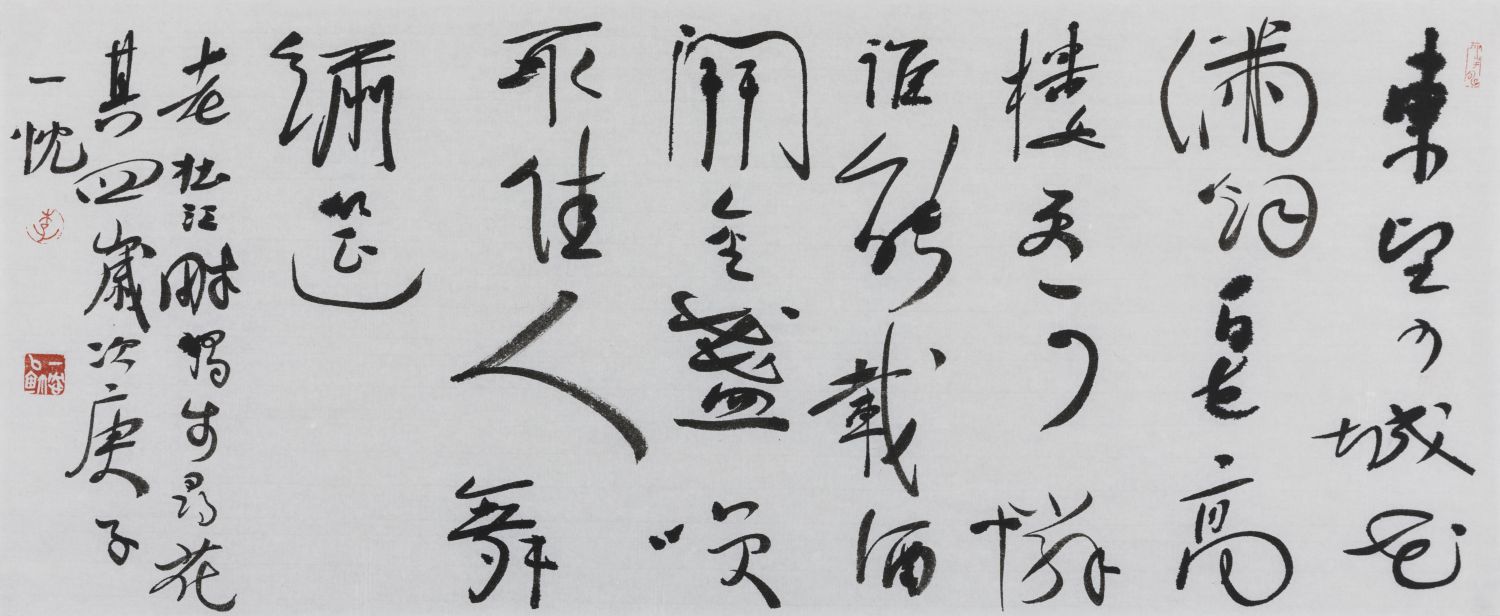 東望少城花
滿烟百花高
楼更可憐
誰能載酒
開金盞喚
取佳人舞
繡筵
老杜江畔獨步尋花
其四歲次庚子
一忱
李